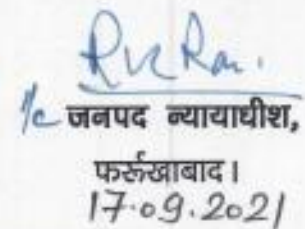 I/c जनपद न्यायाधीश,
फर्रूखाबाद।
17.09.2021